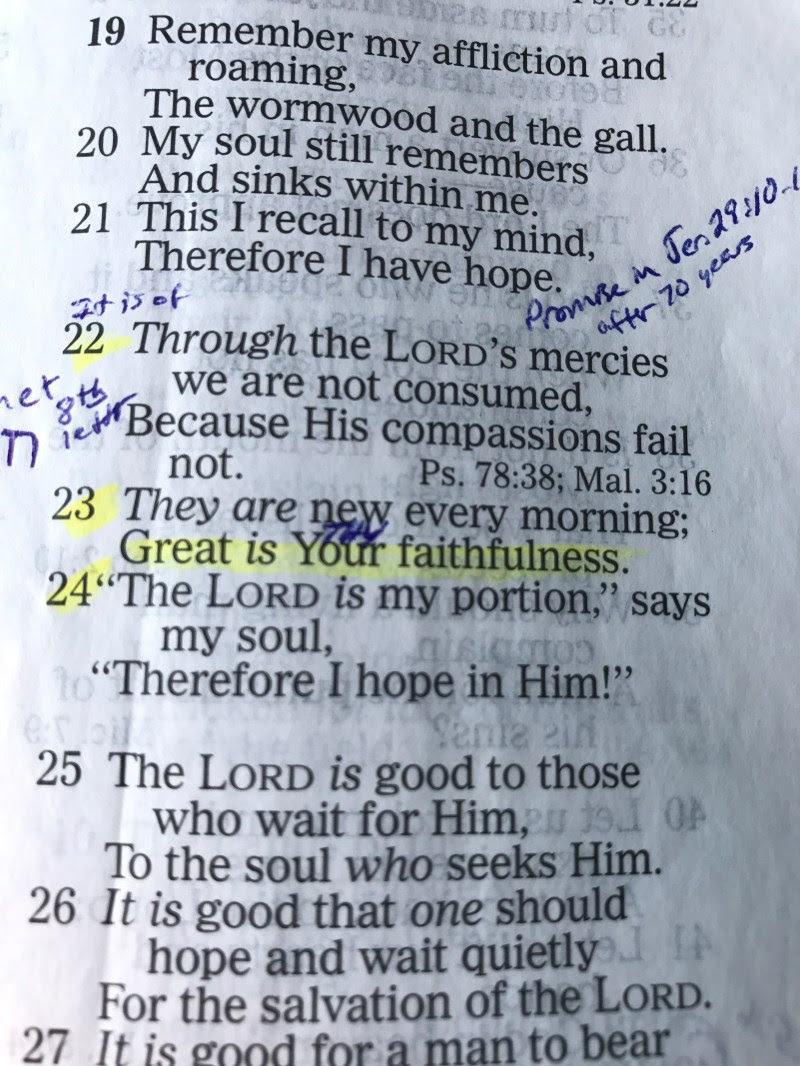 19 Remember my affliction and
roaming,
The wormwood and the gall.
20 My soul still remembers
And sinks within me.
21 This I recall to my mind,
Therefore I have hope.
Promise in Jer. 29:10-1
after 70 years
It is of
22 Through the LORD's mercies
we are not consumed,
8th
letter
ח
Because His compassions fail
not. Ps. 78:38; Mal. 3:16
23 They are new every morning;
Thy
Great is Your faithfulness.
24 “The LORD is my portion,” says
my soul,
“Therefore I hope in Him!”
25 The LORD is good to those
who wait for Him,
To the soul who seeks Him.
26 It is good that one should
hope and wait quietly
For the salvation of the LORD.
27 It is good for a man to bear